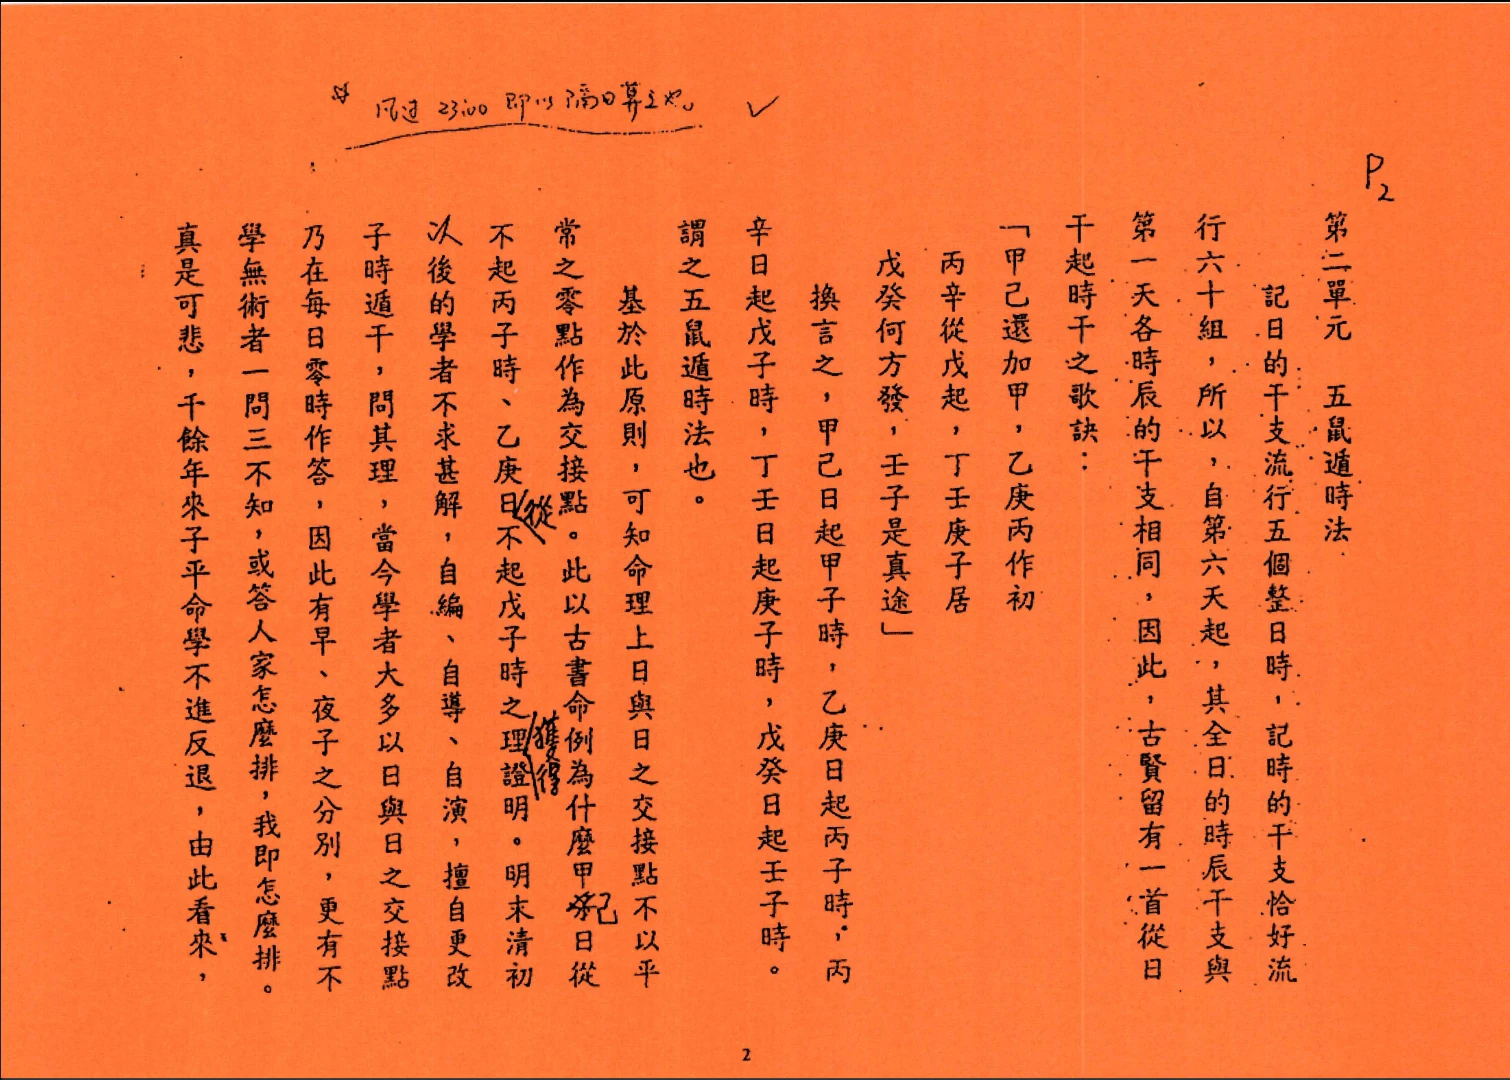 P2
☆ 凡过 23:00 即以隔日算之也。 ✓
第二單元 五鼠遁時法
記日的干支流行五個整日時，記時的干支恰好流
行六十組，所以，自第六天起，其全日的時辰干支與
第一天各時辰的干支相同，因此，古賢留有一首從日
干起時干之歌訣：
「甲己還加甲，乙庚丙作初
丙辛從戊起，丁壬庚子居
戊癸何方發，壬子是真途」
換言之，甲己日起甲子時，乙庚日起丙子時，丙
辛日起戊子時，丁壬日起庚子時，戊癸日起壬子時。
謂之五鼠遁時法也。
基於此原則，可知命理上日與日之交接點不以平
常之零點作為交接點。此以古書命例為什麼甲癸己日從
不起丙子時、乙庚日從不起戊子時之理獲得證明。明末清初
以後的學者不求甚解，自編、自導、自演，擅自更改
子時遁干，問其理，當今學者大多以日與日之交接點
乃在每日零時作答，因此有早、夜子之分別，更有不
學無術者一問三不知，或答人家怎麼排，我即怎麼排。
真是可悲，千餘年來子平命學不進反退，由此看來，
2